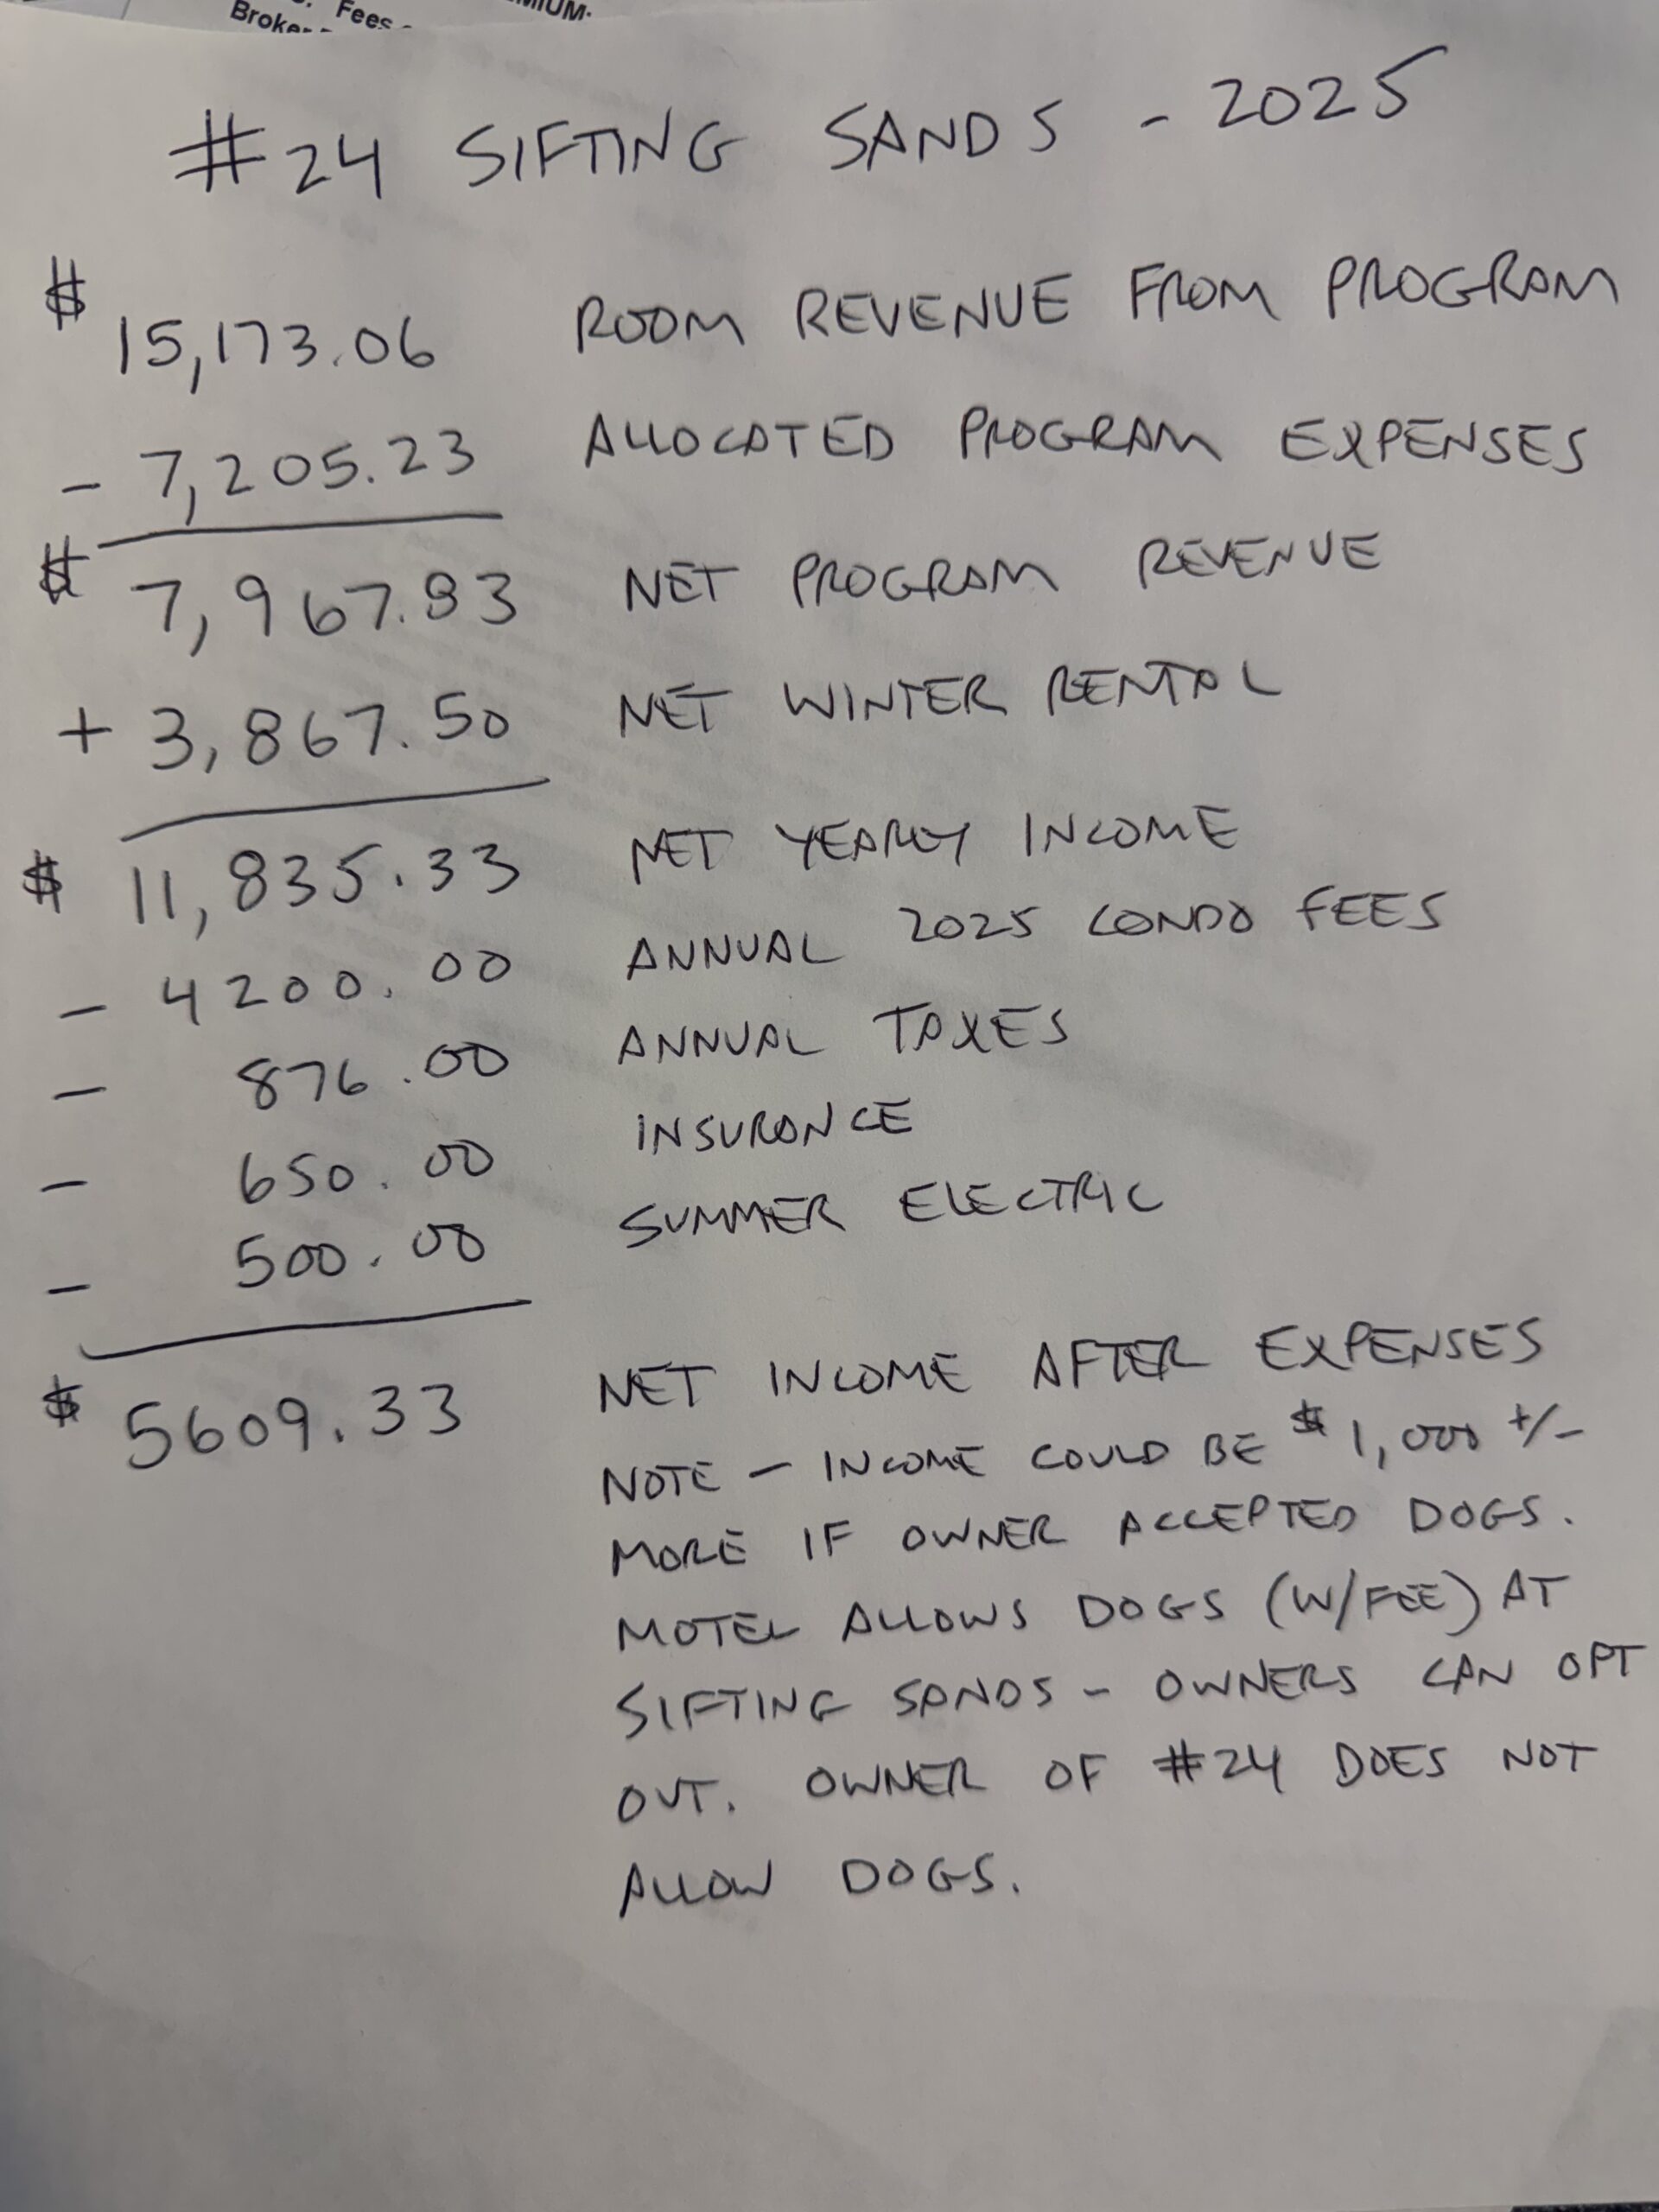 Fees
#24 SIFTING SANDS - 2025
$ 15,173.06 ROOM REVENUE FROM PROGRAM
- 7,205.23 ALLOCATED PROGRAM EXPENSES
$ 7,967.83 NET PROGRAM REVENUE
+ 3,867.50 NET WINTER RENTAL
$ 11,835.33 NET YEARLY INCOME
- 4200.00 ANNUAL 2025 CONDO FEES
- 876.00 ANNUAL TAXES
- 650.00 INSURANCE
- 500.00 SUMMER ELECTRIC
$ 5609.33 NET INCOME AFTER EXPENSES
NOTE - INCOME COULD BE $1,000 +/-
MORE IF OWNER ACCEPTED DOGS.
MOTEL ALLOWS DOGS (W/FEE) AT
SIFTING SANDS - OWNERS CAN OPT
OUT. OWNER OF #24 DOES NOT
ALLOW DOGS.